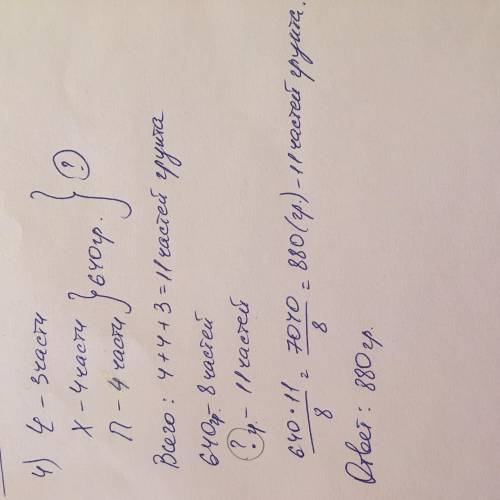 4) Ч - 3 части
Х - 4 части } 640гр. } ?
П - 4 части
Всего: 4+4+3 = 11 частей грунта
640гр - 8 частей
? гр - 11 частей
640·11/8 = 7040/8 = 880(гр.) - 11 частей грунта.
Ответ: 880 гр.